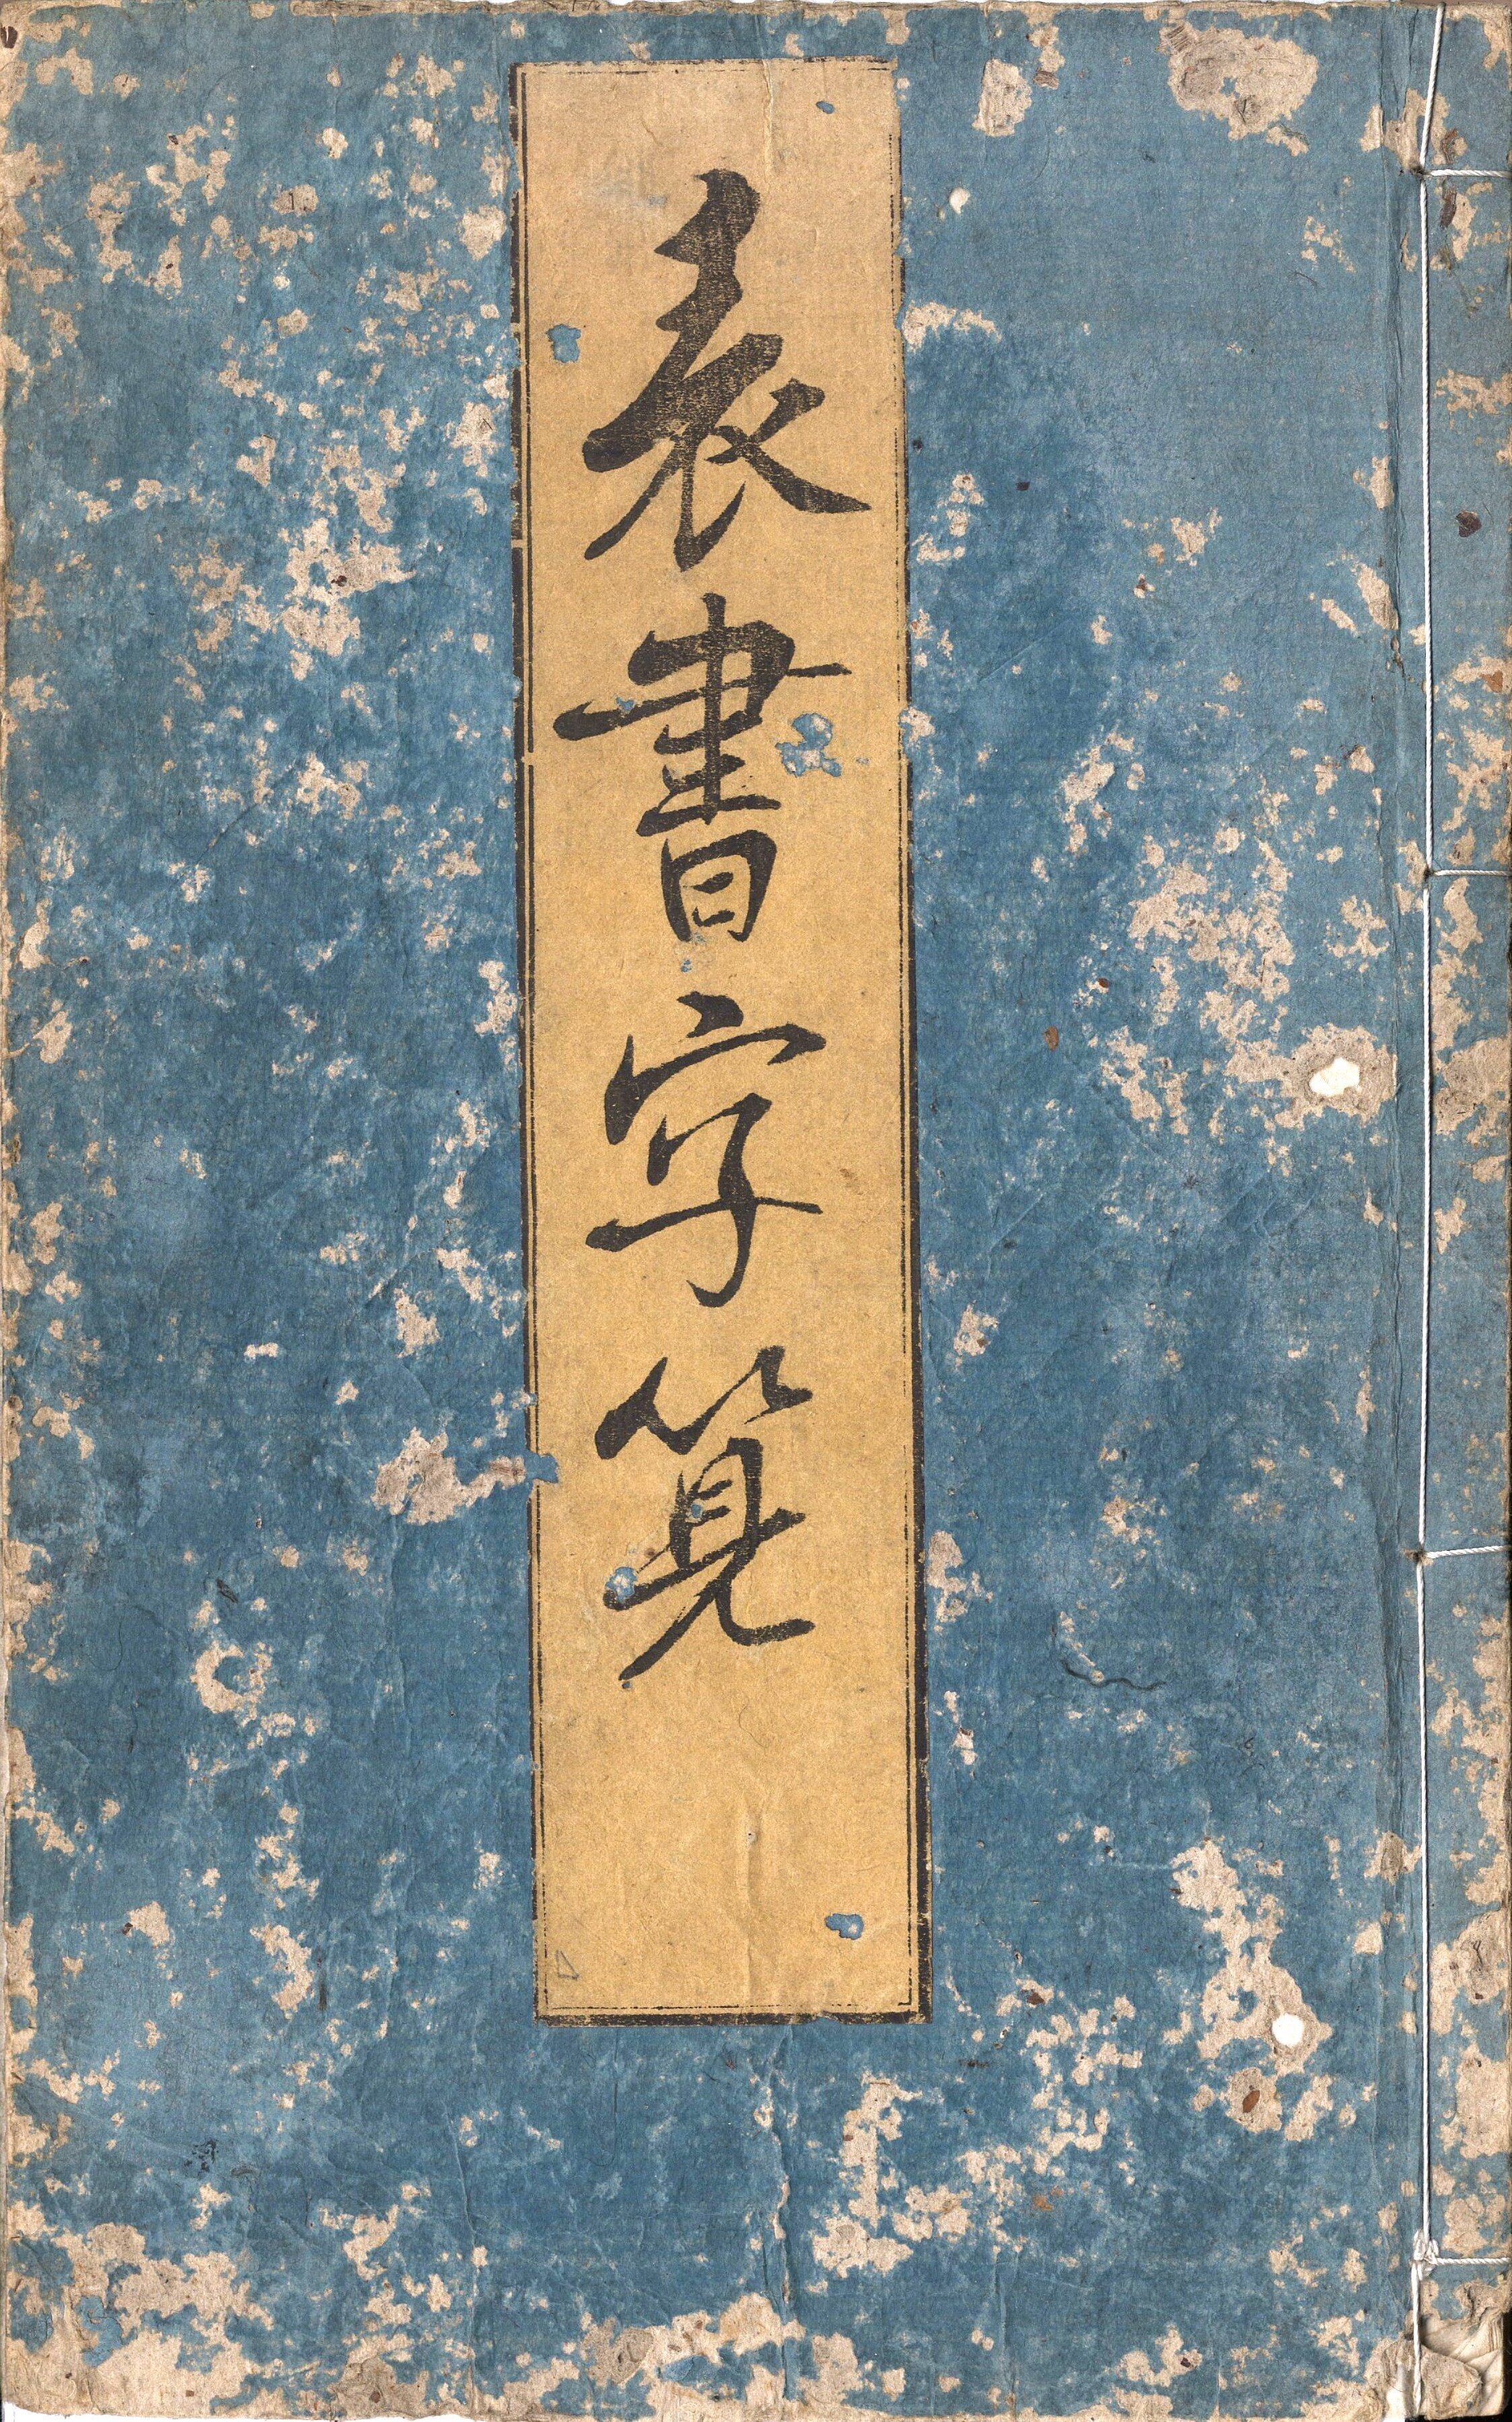 表書字筧